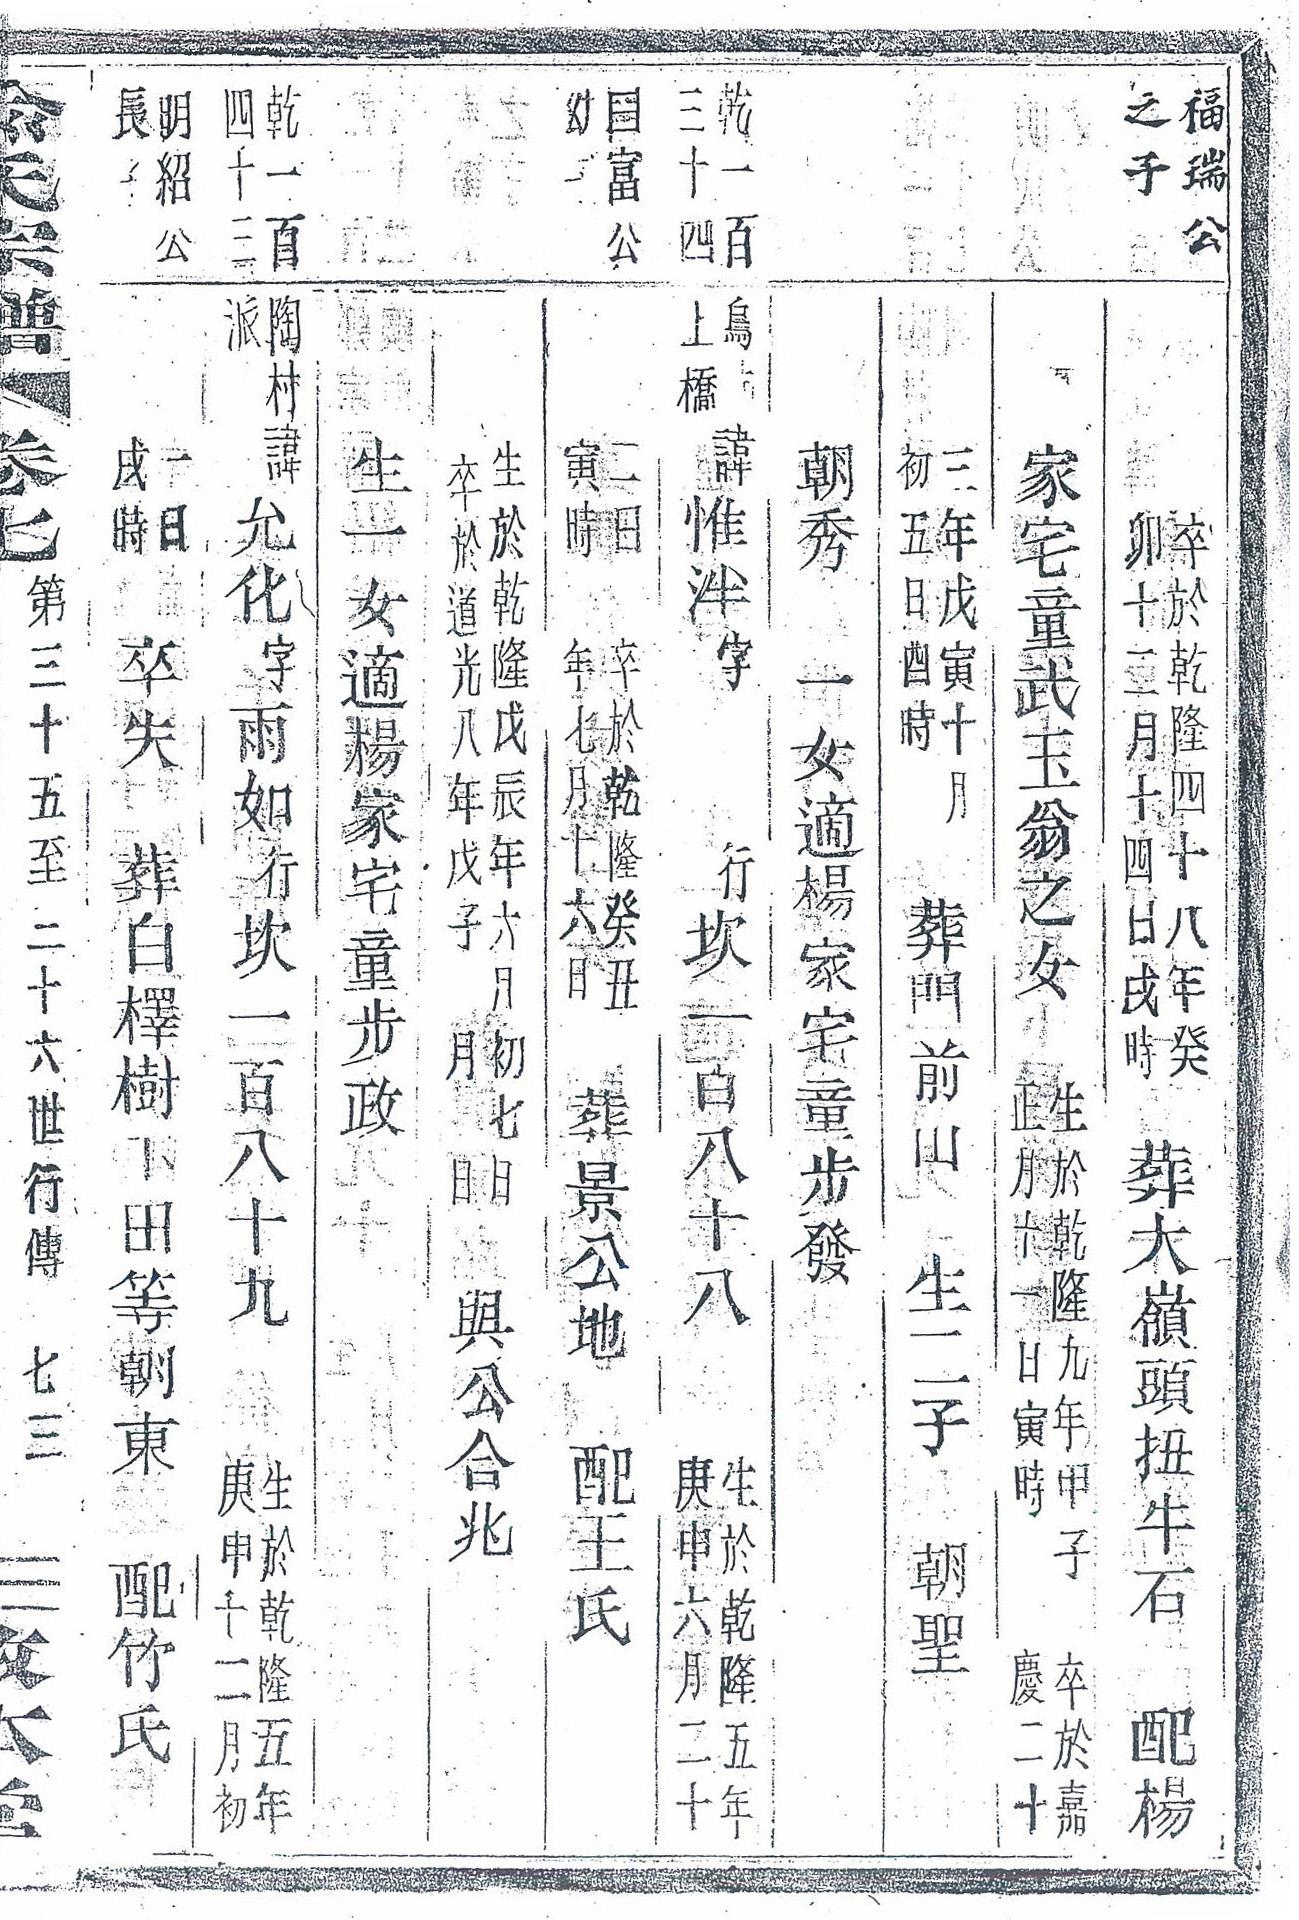 福瑞公
之子
卒於乾隆四十八年癸
卯十二月十四日戌時
葬大嶺頭扭牛石 配楊
家宅童武玉翁之女
生於乾隆九年甲子
正月十一日寅時
卒於嘉
慶二十
三年戊寅十月
初五日酉時
葬門前山 生二子 朝聖
朝秀 一女適楊家宅童步發
乾一百
三十四
上橋
諱惟泮字 行坎一百八十八
生於乾隆五年
庚申六月二十
富公
幼
二日
寅時
卒於乾隆癸丑
年七月十六日
葬景公地 配王氏
生於乾隆戊辰年六月初七日
卒於道光八年戊子 月 日
與公合兆
生一女適楊家宅童步政
乾一百
四十三
陶村
派
諱允化字雨如行坎一百八十九
生於乾隆五年
庚申十二月初
明紹公
長子
一日
戌時
卒失 葬白檡樹下田等朝東 配竹氏
宗譜 卷七 第三十五至二十六世行傳 七三